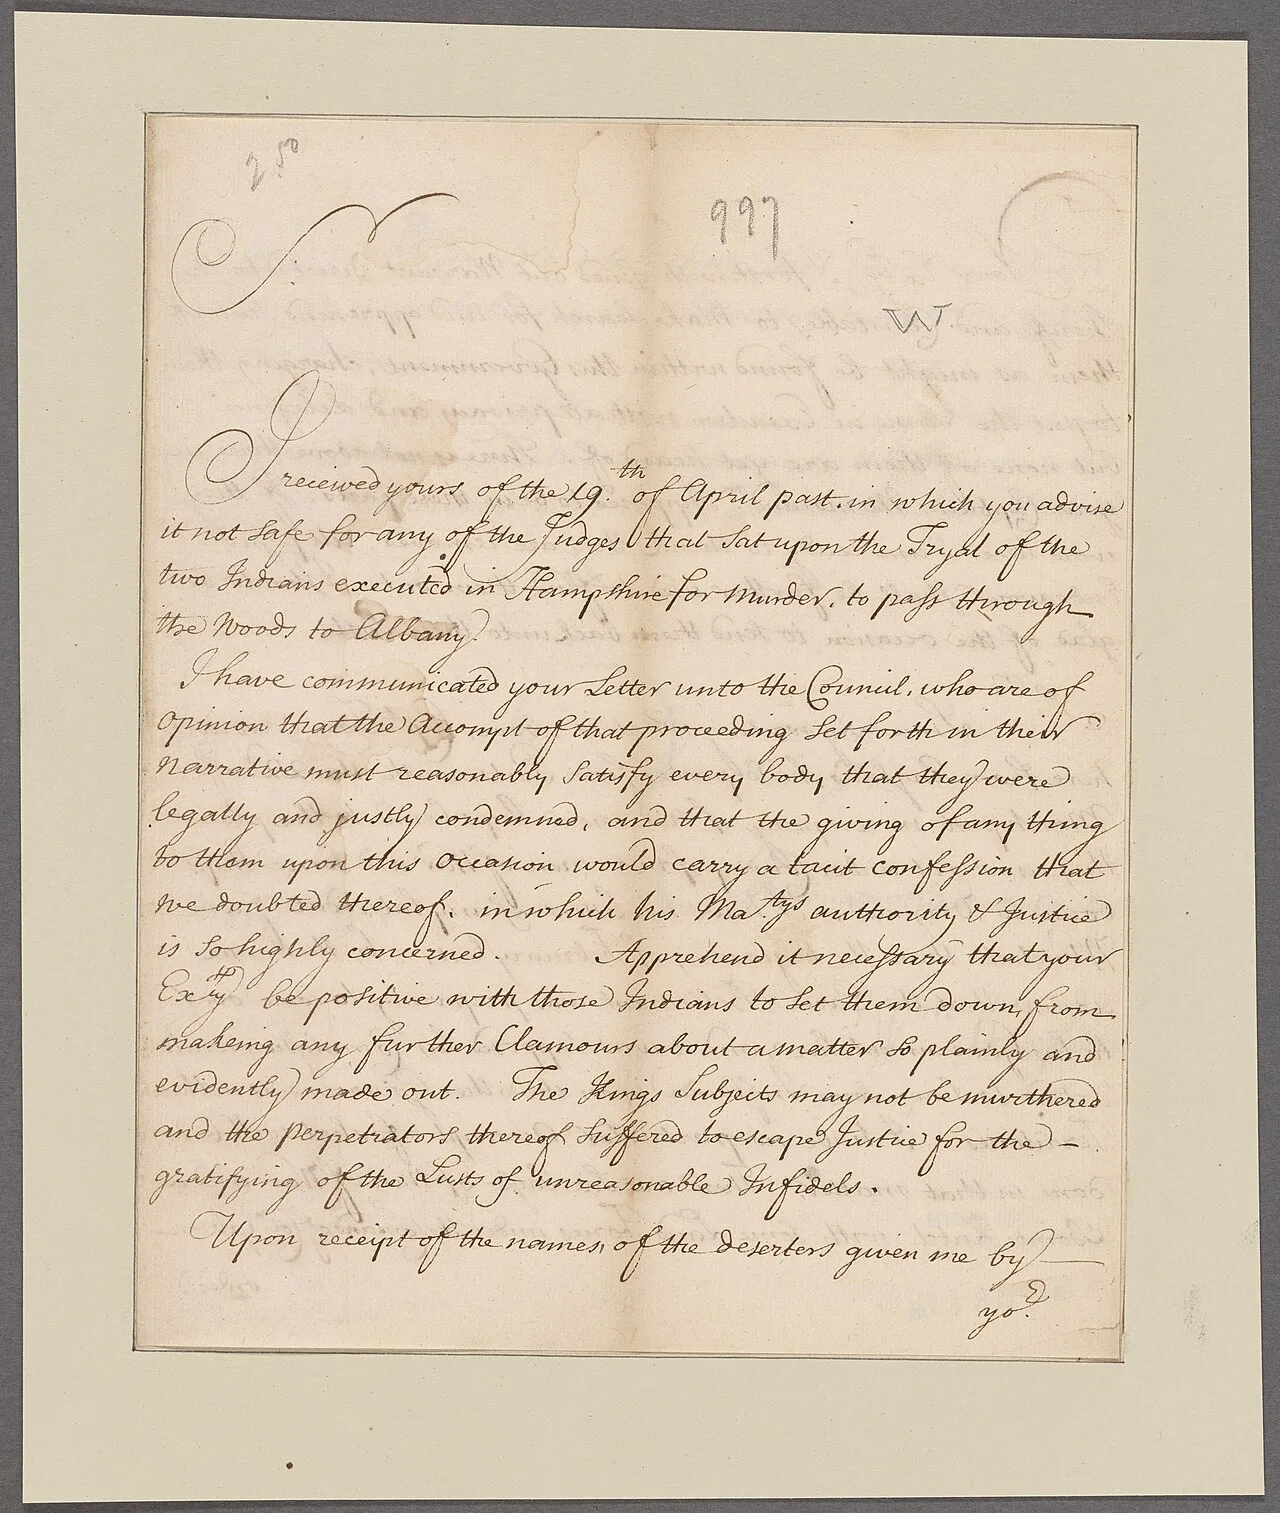 2.50
997
S.r
W.
I received yours of the 19.th of April past. in which you advise
it not safe for any of the Judges that sat upon the Tryal of the
two Indians executed in Hampshire for Murder. to pass through
the Woods to Albany.
I have communicated your Letter unto the Council, who are of
opinion that the Accompt of that proceeding set forth in their
Narrative must reasonably satisfy every body that they were
legally and justly condemned, and that the giving of any thing
to them upon this occasion would carry a tacit confession that
we doubted thereof. in which his Ma.tys authority & Justice
is so highly concerned. Apprehend it necessary that your
Ex.cy be positive with those Indians to set them down from
makeing any further Clamours about a matter so plainly and
evidently made out. The Kings Subjects may not be murthered
and the perpetrators thereof suffered to escape Justice for the –
gratifying of the Lusts of unreasonable Infidels.
Upon receipt of the names, of the deserters given me by
yo.r